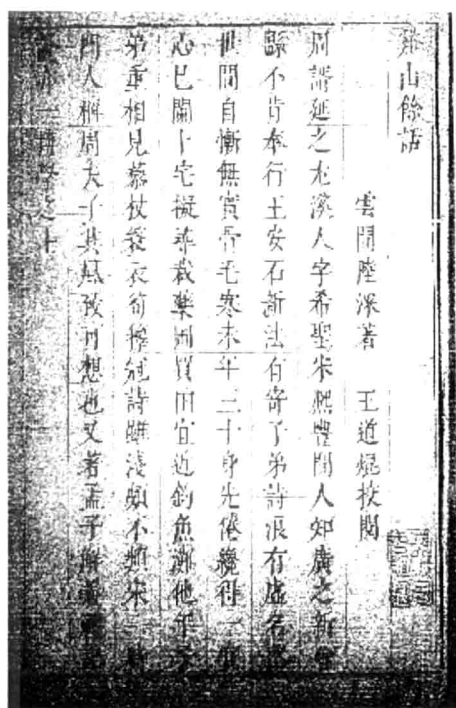 山餘話
雲間陸深著 王道焜校閱
周諝延之尤溪人字希聖宋熙豐間人知廣之新會
縣不肯奉行王安石新法有寄子弟詩浪有虛名
世間自慚無實骨毛寒未年三十身先倦纔得一
心已闌卜宅擬尋栽藥圃買田宜近釣魚灘他年
弟重相見藜杖簑衣荀籜冠詩雖淺頗不類宋
間人稱周夫子其風致可想也又著孟子解義